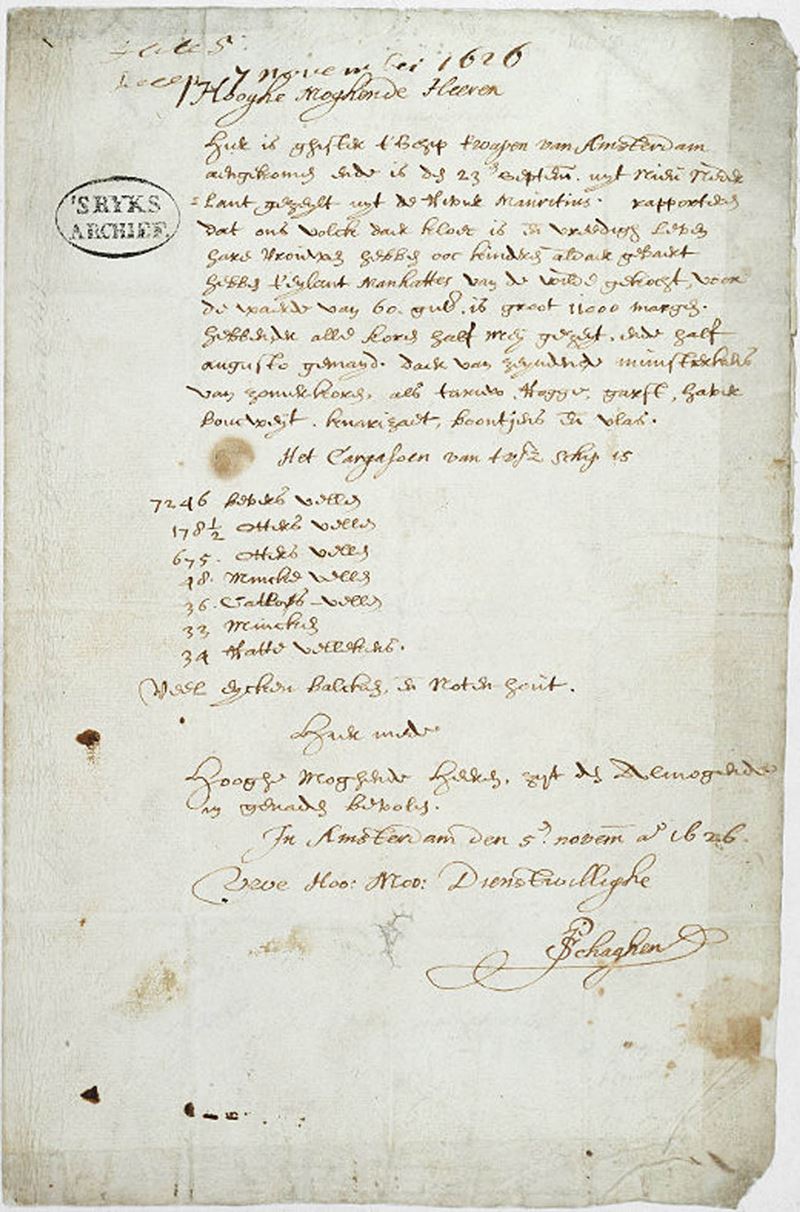 7 november 1626
Hooghe Moghende Heeren
Hier is ghister t'Schip t'wapen van Amsterdam
aengekomen ende is den 23en septem. uyt Nieu Neder
lant gezeylt uyt de Rivier Mauritius. rapporteren
dat ons volck daer kloec is en vreedigh leven
hare Vrouwen hebben ooc kinderen aldaer gebaert
hebben t'eylant Manhattes van de wilde gekocht, voor
de waerde van 60. guld. is groot 11000 morgen.
hebbende alle koren half mey gezeyt, ende half
augusto gemayd. daer van zeynden munsterkens
van zomerkoren, als tarwe, Rogge, garst, haver
boucweyt, knarizaet, boontjens en vlas.
Het Cargasoen van tvsz schip is
7246 bevers vellen
178½ Otters vellen
675. Otters vellen
48. Mincke vellen
36. Catloes vellen
33 Mincken
34 Ratte vellekens.
Veel eycken balcken, en Noten hout.
Hier mede
Hooghe Moghende Heeren, zyt den Almogende
in genaden bevolen.
In Amsterdam den 5en novem ao 1626.
Uwe Hoo: Moo: Dienstwillighe
P Schaghen
'S RYKS
ARCHIEF.